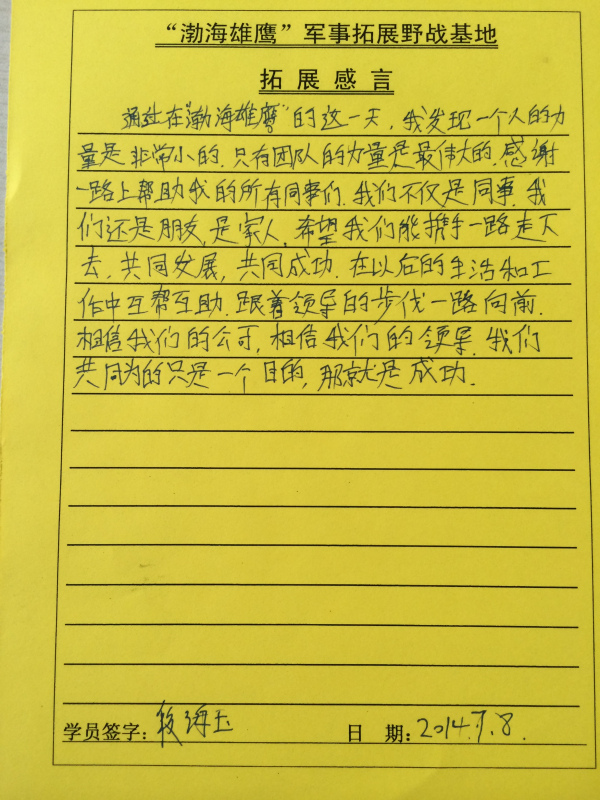 “渤海雄鹰”军事拓展野战基地
拓展感言
通过在“渤海雄鹰”的这一天,我发现一个人的力
量是非常小的.只有团队的力量是最伟大的.感谢
一路上帮助我的所有同事们.我们不仅是同事.我
们还是朋友,是家人,希望我们能携手一路走下
去.共同发展,共同成功.在以后的生活和工
作中互帮互助.跟着领导的步伐一路向前.
相信我们的公司,相信我们的领导.我们
共同为的只是一个目的,那就是成功.
学员签字:段海玉 日 期:2014.7.8.